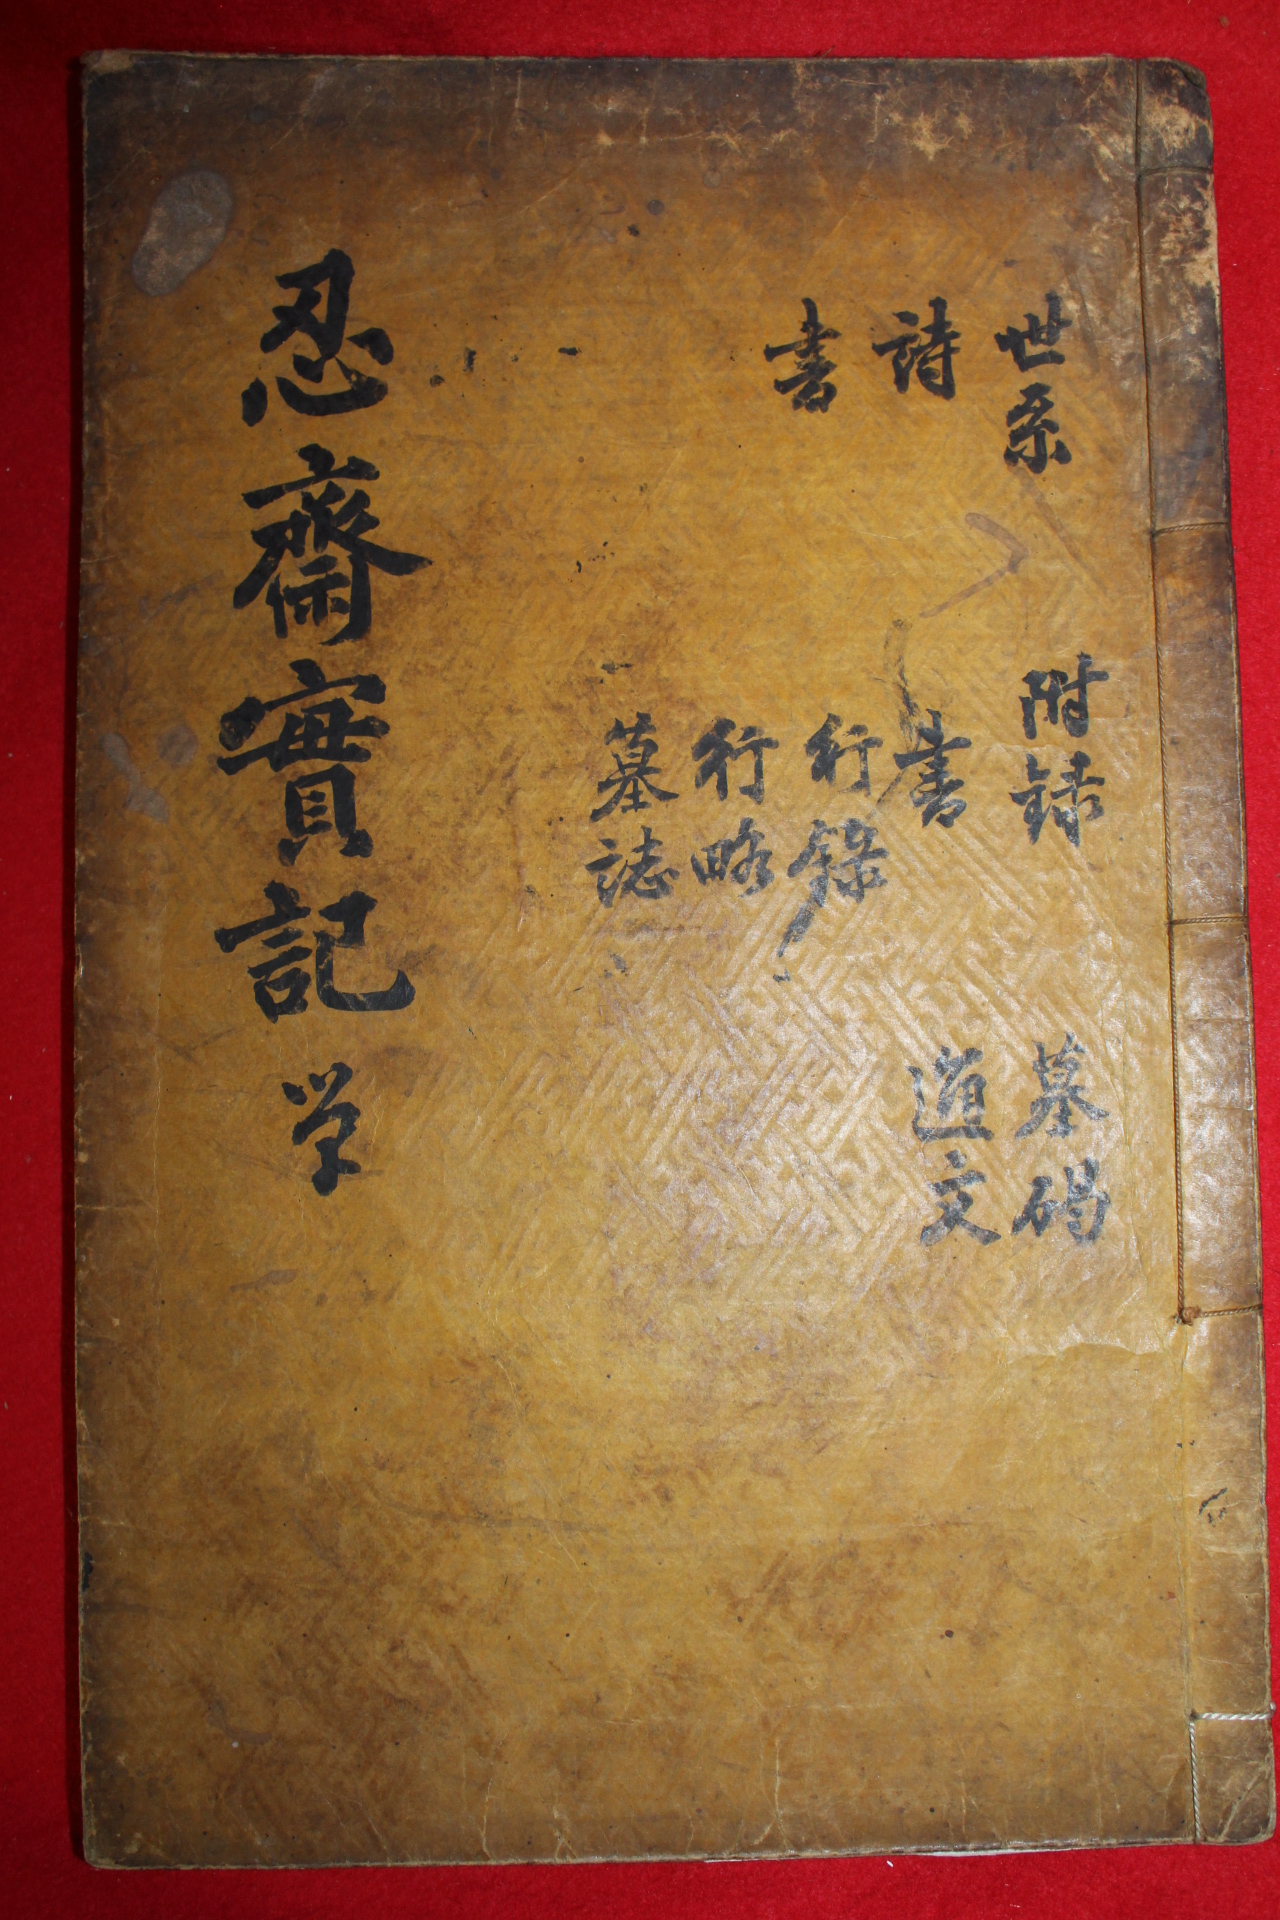 世系
詩
書
附録
書
行錄
行略
墓誌
墓碣
文
忍齋實記